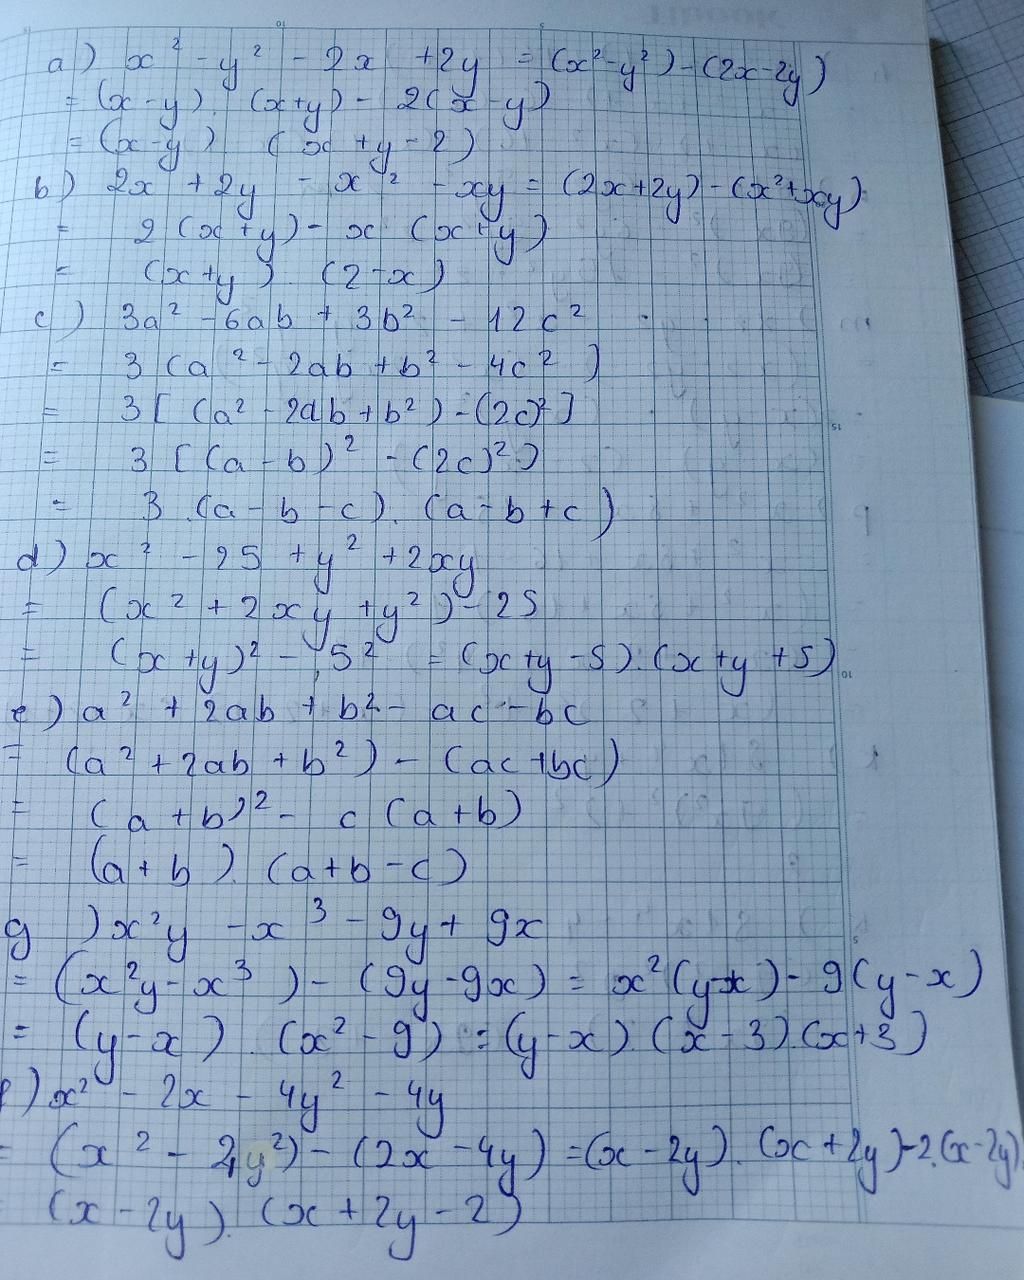 a) x² - y² - 2x + 2y = (x² - y²) - (2x - 2y)
= (x - y) . (x + y) - 2(x - y)
= (x - y) . (x + y - 2)
b) 2x + 2y - x² - xy = (2x + 2y) - (x² + xy)
= 2 (x + y) - x (x + y)
= (x + y) . (2 - x)
c) 3a² - 6ab + 3b² - 12c²
= 3 (a² - 2ab + b² - 4c²)
= 3 [(a² - 2ab + b²) - (2c)²]
= 3 [(a - b)² - (2c)²]
= 3 . (a - b - c) . (a - b + c)
d) x² - 25 + y² + 2xy
= (x² + 2xy + y²) - 25
= (x + y)² - 5² = (x + y - 5) . (x + y + 5)
e) a² + 2ab + b² - ac - bc
= (a² + 2ab + b²) - (ac + bc)
= (a + b)² - c (a + b)
= (a + b) . (a + b - c)
g) x²y - x³ - 9y + 9x
= (x²y - x³) - (9y - 9x) = x² (y - x) - 9 (y - x)
= (y - x) . (x² - 9) = (y - x) . (x - 3) . (x + 3)
f) x² - 2x - 4y² - 4y
= (x² - 4y²) - (2x - 4y) = (x - 2y) . (x + 2y) - 2 . (x - 2y)
(x - 2y) . (x + 2y - 2)